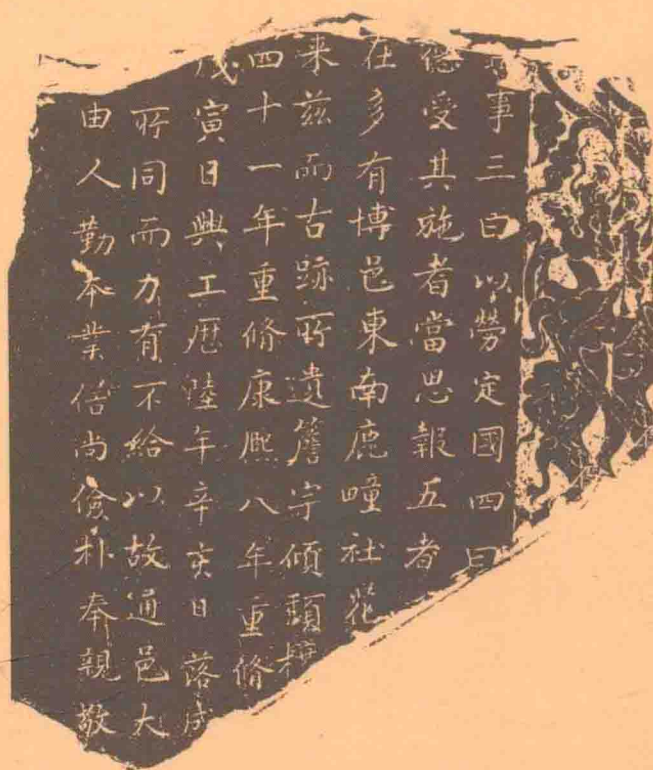 事三曰以勞定國四曰
德受其施者當思報五者
在多有博邑東南鹿疃社花
来兹而古跡所遺簷宇傾頹
四十一年重脩康熈八年重脩
戊寅日興工歷陸年辛亥日落成
所同而力有不給以故通邑大
由人勤本業俗尚儉朴奉親敬